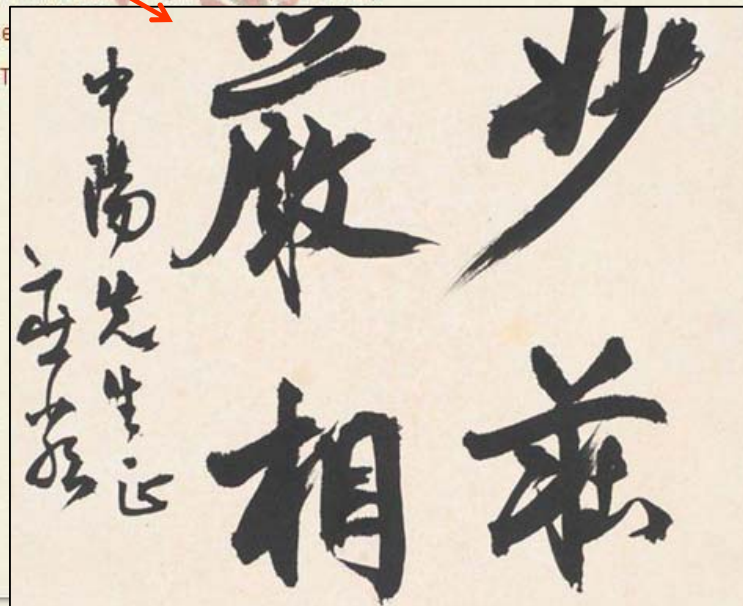 妙莊
嚴相
中陽先生正